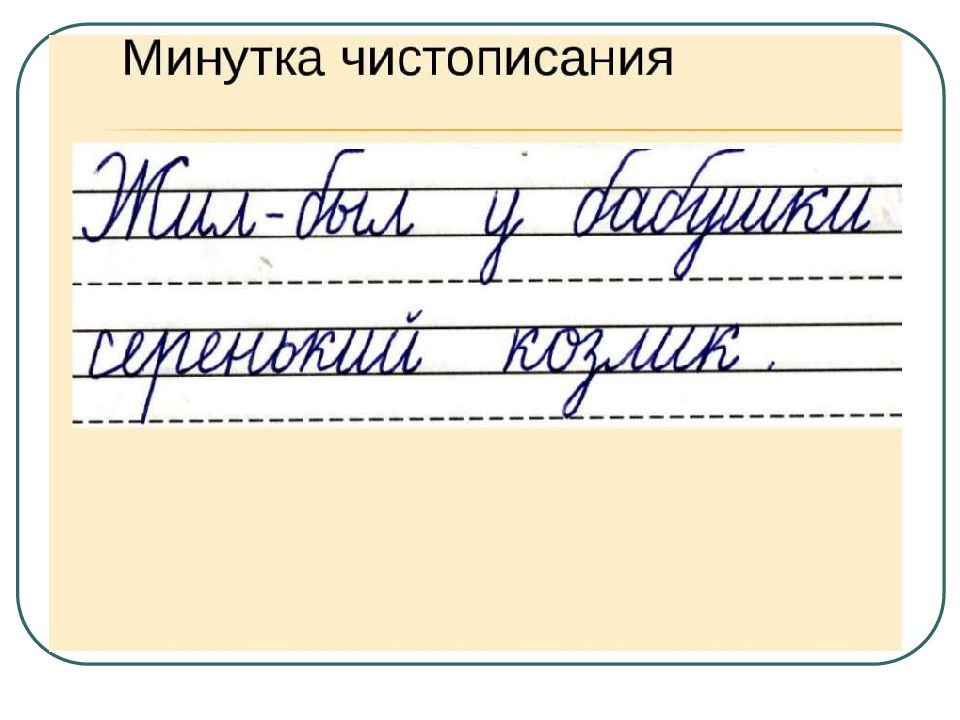 Минутка чистописания
Жил-был у бабушки
серенький козлик.